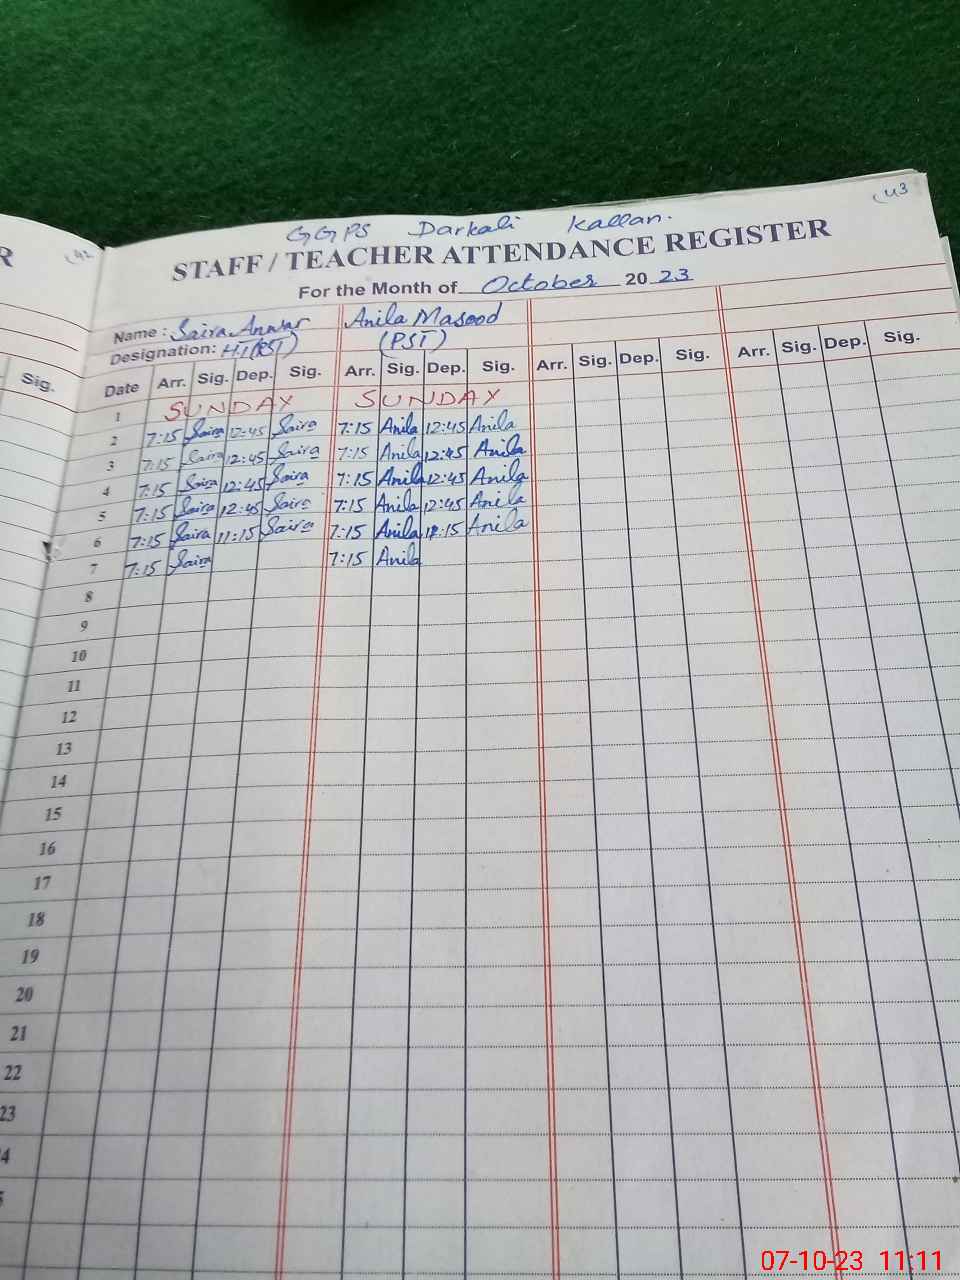 R
(42
(43
GGPS Darkali Kallan.
STAFF / TEACHER ATTENDANCE REGISTER
For the Month of October 2023
Name: Saira Anwar Anila Masood
Designation: HT(PST) (PST)
Sig.
Date Arr. Sig. Dep. Sig. Arr. Sig. Dep. Sig. Arr. Sig. Dep. Sig. Arr. Sig. Dep. Sig.
1 SUNDAY SUNDAY
2 7:15 Saira 12:45 Saira 7:15 Anila 12:45 Anila
3 7:15 Saira 12:45 Saira 7:15 Anila 12:45 Anila
4 7:15 Saira 12:45 Saira 7:15 Anila 12:45 Anila
5 7:15 Saira 12:45 Saira 7:15 Anila 12:45 Anila
6 7:15 Saira 11:15 Saira 7:15 Anila 11:15 Anila
7 7:15 Saira 7:15 Anila
8
9
10
11
12
13
14
15
16
17
18
19
20
21
22
23
4
5
07-10-23 11:11